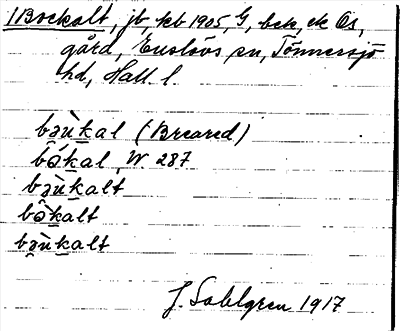 1 Bockalt, jb kb 1905, G, bek, ek Ör,
gård, Enslövs sn, Tönnersjö
hd, Hall. l.
bəùkal (Breared)
bə́kal W. 287
bəùkalt
bə̀kalt
bəùkalt
J. Sahlgren 1917